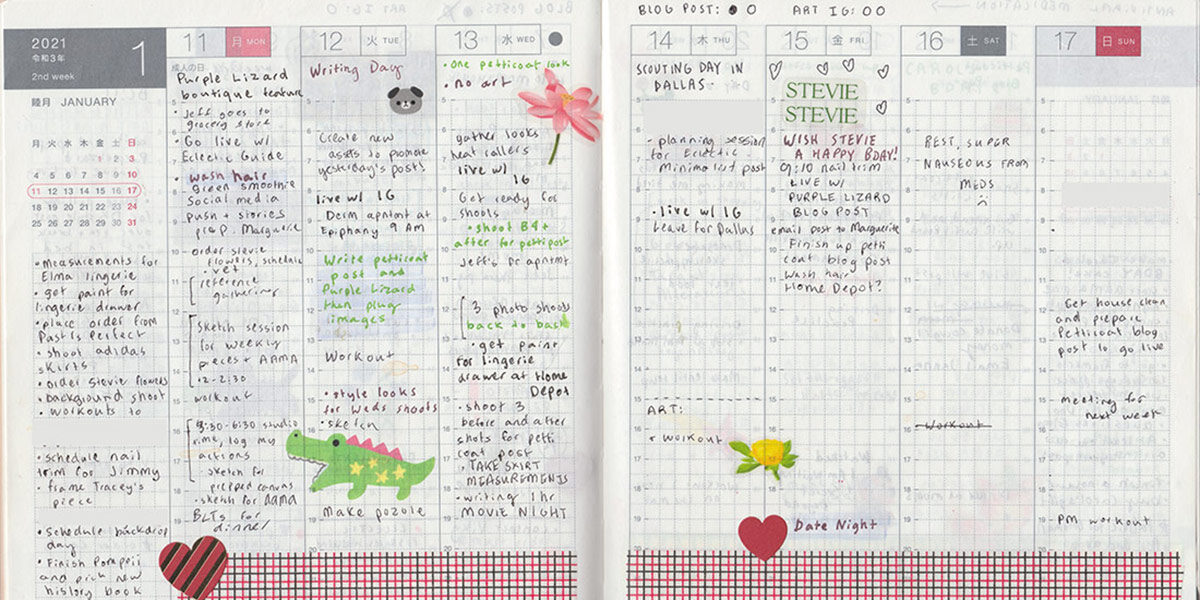 2021
令和3年
2nd week
1
睦月 JANUARY
月 火 水 木 金 土 日
1 2 3
4 5 6 7 8 9 10
11 12 13 14 15 16 17
18 19 20 21 22 23 24
25 26 27 28 29 30 31
• measurements for
Elma lingerie
• get paint for
lingerie drawer
• place order from
Past is Perfect
• shoot adidas
skirts
• order Stevie flowers
• background shoot
• workouts to
• schedule nail
trim for Jimmy
• frame Tracey's
piece
• Schedule backdrop
day
• Finish Pompeii
and pick new
history book
11 月 MON
成人の日
Purple Lizard
boutique feature
• Jeff goes to
grocery store
• Go live w/
Eclectic Guide
• wash hair
Green smoothie
Social media
push + stories
prep. Marguerite
order Stevie
flowers, schedule
• vet
reference
gathering
Sketch session
for weekly
pieces + AAMA
• 12-2:30
workout
3:30-6:30 studio
time, log my
actions
• sketch for
prepped canvas
• sketch for AAMA
BLTs for
dinner
12 火 TUE
Writing Day
Create new
assets to promote
yesterday's posts
live w/ IG
Derm apntmt at
Epiphany 9 AM
Write petticoat
post and
Purple Lizard
then plug
images
Workout
• style looks
for Weds shoots
• sketch
Make pozole
13 水 WED
• One petticoat look
• no art
gather looks
heat rollers
live w/
IG
Get ready for
shoots
• shoot B4+
after for petti post
Jeff's Dr apntmt
3 photo shoots
back to back
• get paint
for lingerie
drawer at Home
Depot
• shoot 3
before and after
shots for petti
coat post
• TAKE SKIRT
MEASUREMENTS
• writing 1hr
MOVIE NIGHT
BLOG POST: ● O ART IG: O O
14 木 THU
SCOUTING DAY IN
DALLAS
• planning session
for Eclectic
Minimalist post
• live w/ IG
Leave for Dallas
ART:
• workout
15 金 FRI
STEVIE
STEVIE
WISH STEVIE
A HAPPY BDAY!
9:10 nail trim
LIVE W/
PURPLE LIZARD
BLOG POST
email post to Marguerite
Finish up petti
coat blog post
Wash hair
Home Depot?
Date Night
16 土 SAT
REST, SUPER
NAUSEOUS FROM
MEDS
Workout
17 日 SUN
Get house clean
and prepare
Petticoat blog
post to go live
meeting for
next week
PM workout